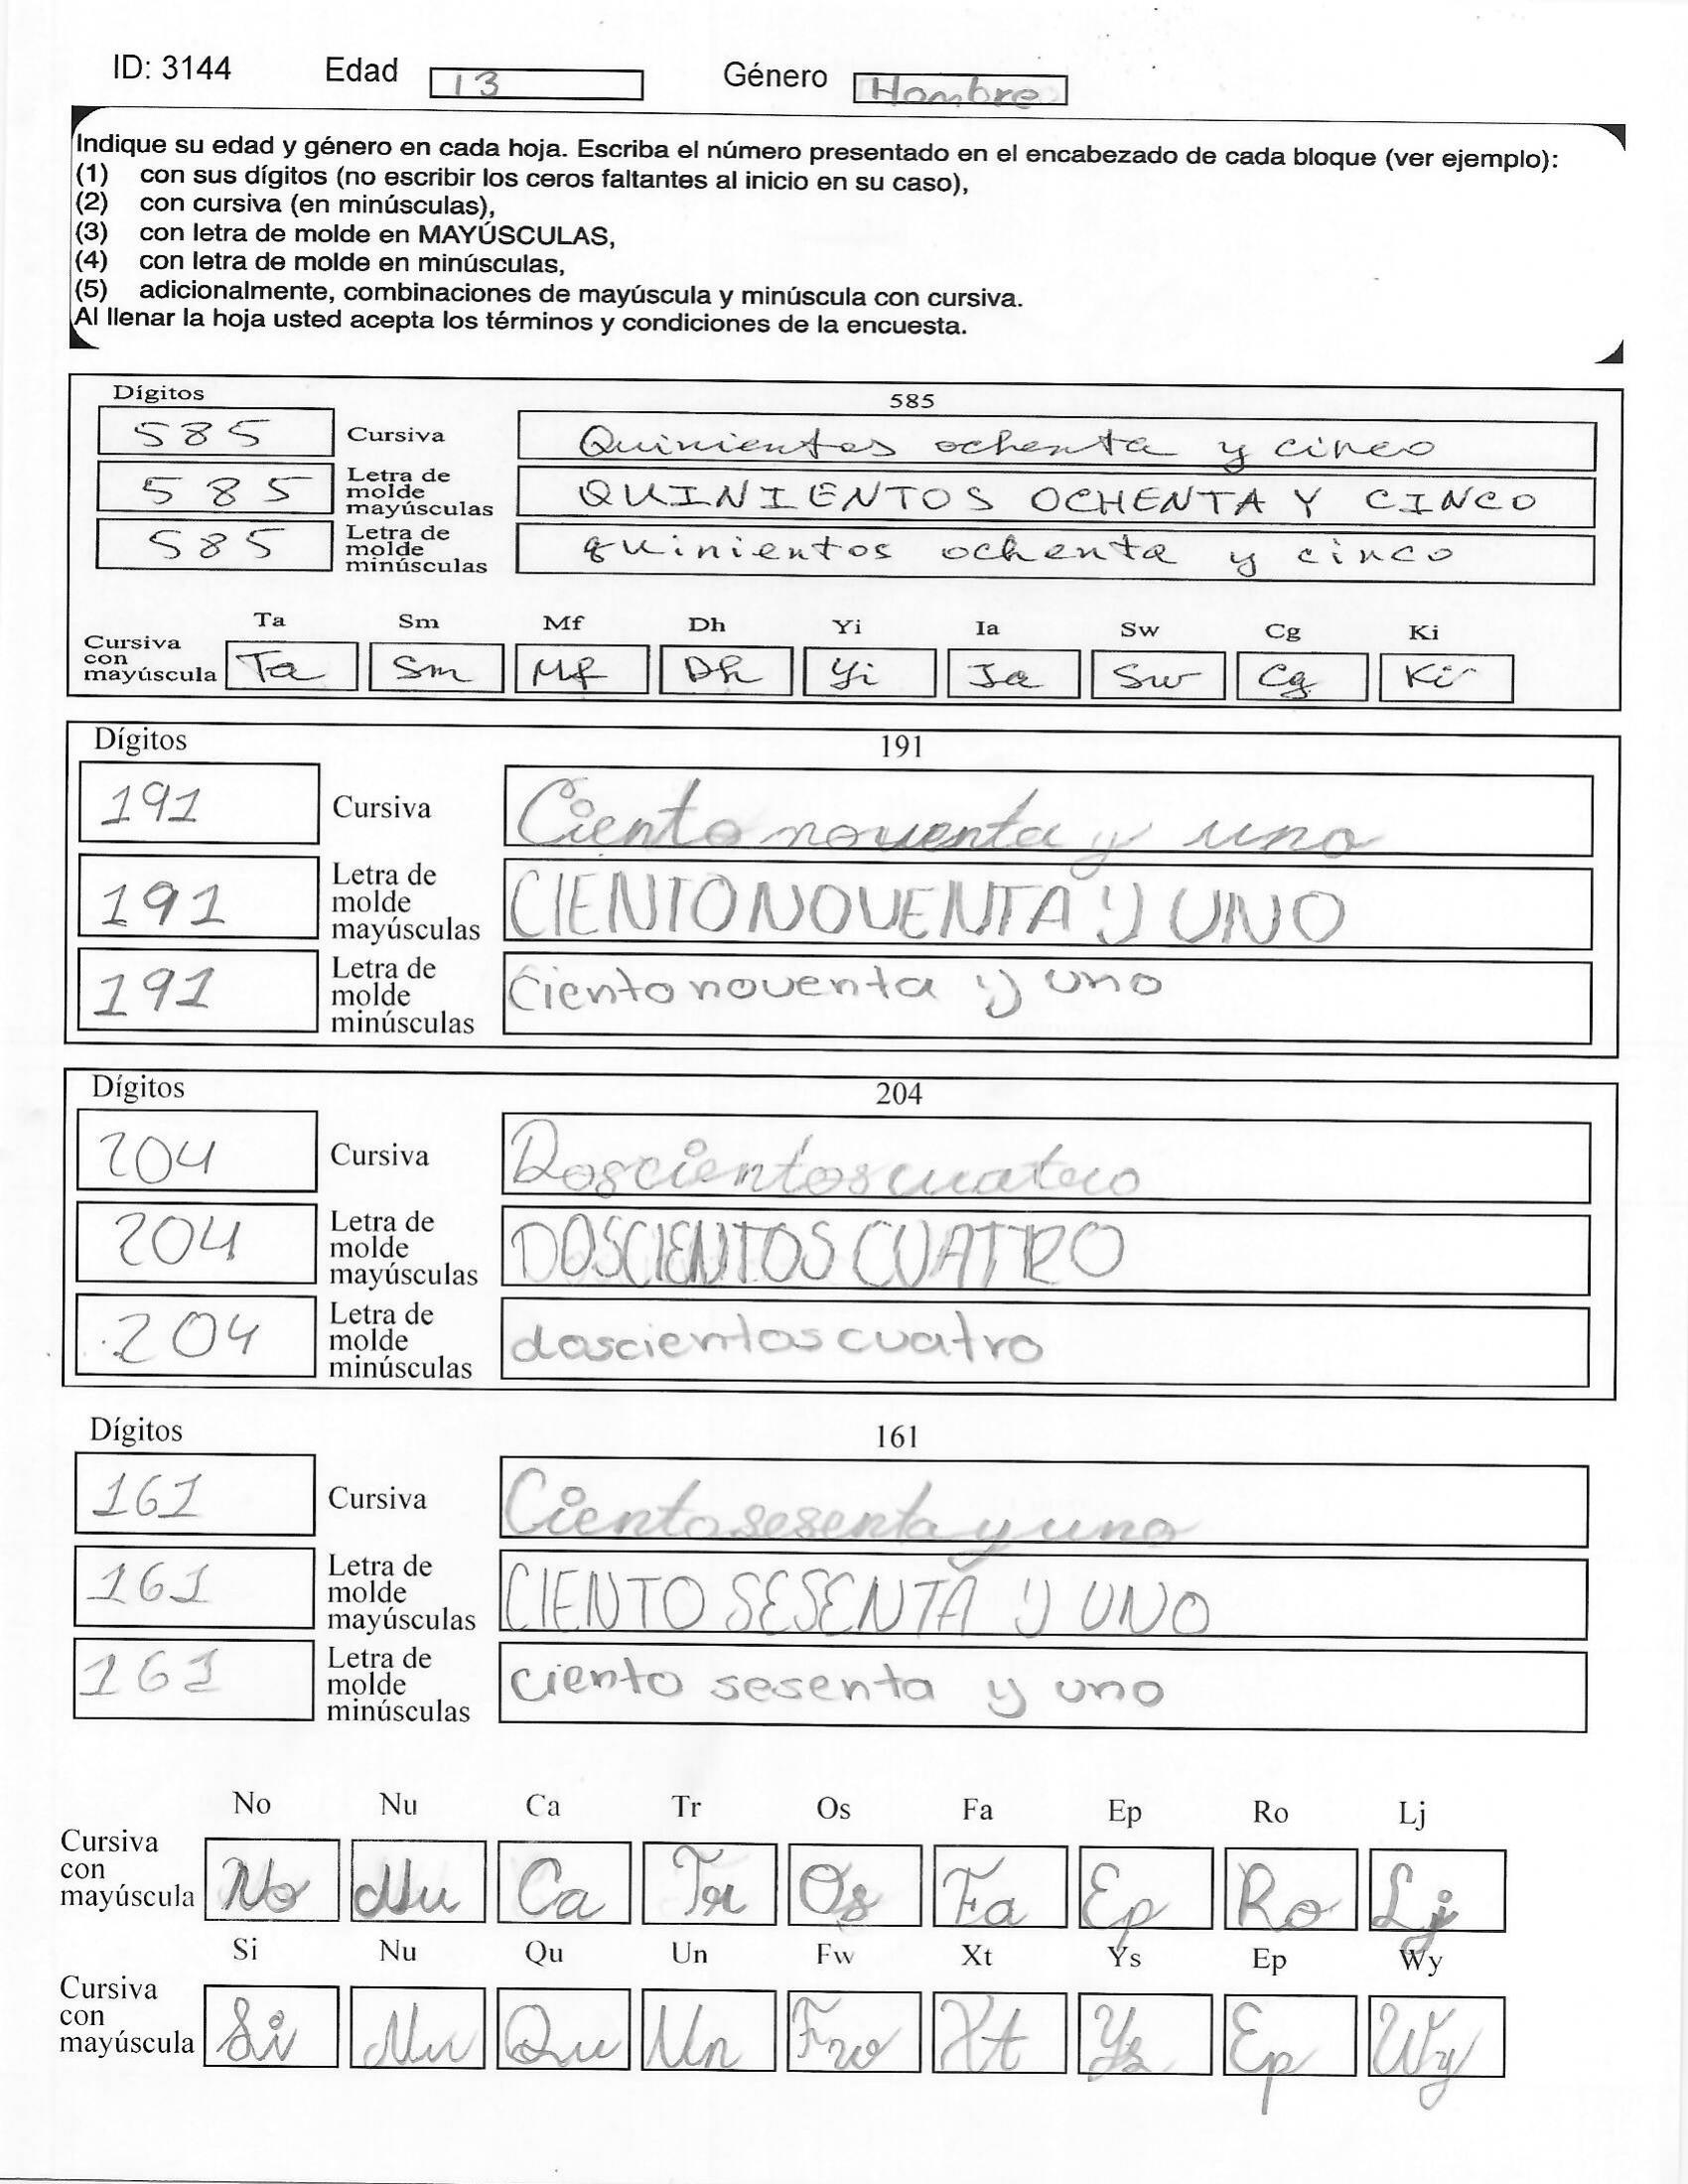 ID: 3144 Edad 13 Género Hombre
Indique su edad y género en cada hoja. Escriba el número presentado en el encabezado de cada bloque (ver ejemplo):
(1) con sus dígitos (no escribir los ceros faltantes al inicio en su caso),
(2) con cursiva (en minúsculas),
(3) con letra de molde en MAYÚSCULAS,
(4) con letra de molde en minúsculas,
(5) adicionalmente, combinaciones de mayúscula y minúscula con cursiva.
Al llenar la hoja usted acepta los términos y condiciones de la encuesta.
Dígitos 585
585 Cursiva Quinientos ochenta y cinco
585 Letra de molde mayúsculas QUINIENTOS OCHENTA Y CINCO
585 Letra de molde minúsculas quinientos ochenta y cinco
Ta Sm Mf Dh Yi Ia Sw Cg Ki
Cursiva con mayúscula Ta Sm Mf Dh Yi Ia Sw Cg Ki
Dígitos 191
191 Cursiva Ciento noventa y uno
191 Letra de molde mayúsculas CIENTO NOVENTA Y UNO
191 Letra de molde minúsculas Ciento noventa y uno
Dígitos 204
204 Cursiva Doscientos cuatro
204 Letra de molde mayúsculas DOSCIENTOS CUATRO
204 Letra de molde minúsculas doscientos cuatro
Dígitos 161
161 Cursiva Ciento sesenta y uno
161 Letra de molde mayúsculas CIENTO SESENTA Y UNO
161 Letra de molde minúsculas ciento sesenta y uno
No Nu Ca Tr Os Fa Ep Ro Lj
Cursiva con mayúscula No Nu Ca Tr Os Fa Ep Ro Lj
Si Nu Qu Un Fw Xt Ys Ep Wy
Cursiva con mayúscula Si Nu Qu Un Fw Xt Ys Ep Wy